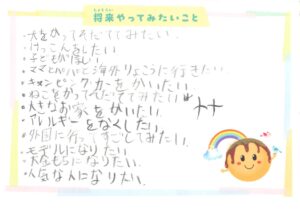 しょうらい
将来やってみたいこと
・犬をかってそだててみたい。
・けっこんをしたい
・子どもがほしい
・ママとパパと海外りょこうに行きたい
・キャンピングカーをかいたい。
・ねこをかってそだててみたい
・大きなお家をかいたい。
・アレルギーをなくしたい。
・外国に行ってすごしてみたい。
・モデルになりたい
・大金もちになりたい。
・人気な人になりたい。